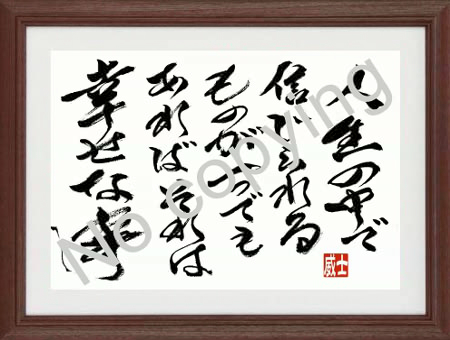 人生の中で
信じられる
ものが一つでも
あればそれは
幸せな事
威士
No copying